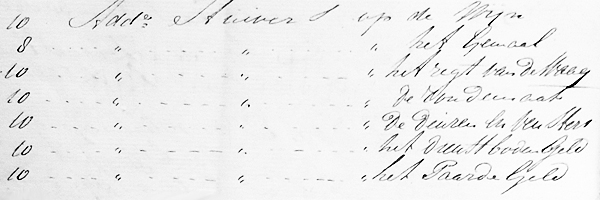 10 Addle Stuivers op de Wijn
8 " " " het Gemaal
10 " " " het regt van de Waag
10 " " " De rondemaat
10 " " " De Deuren en Vensters
10 " " " het dienstboden Geld
10 " " " het Paarde Geld